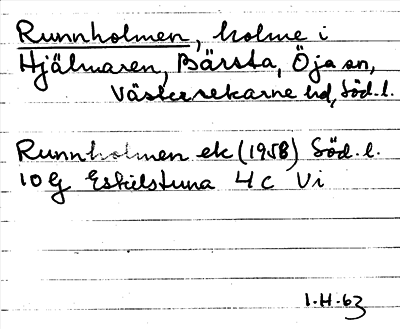 Runnholmen, holme i
Hjälmaren, Bärsta, Öja sn,
Västerrekarne hd, Söd. l.
Runnholmen ek (1958) Söd. l.
10 G Eskilstuna 4 c Vi
1.H.63